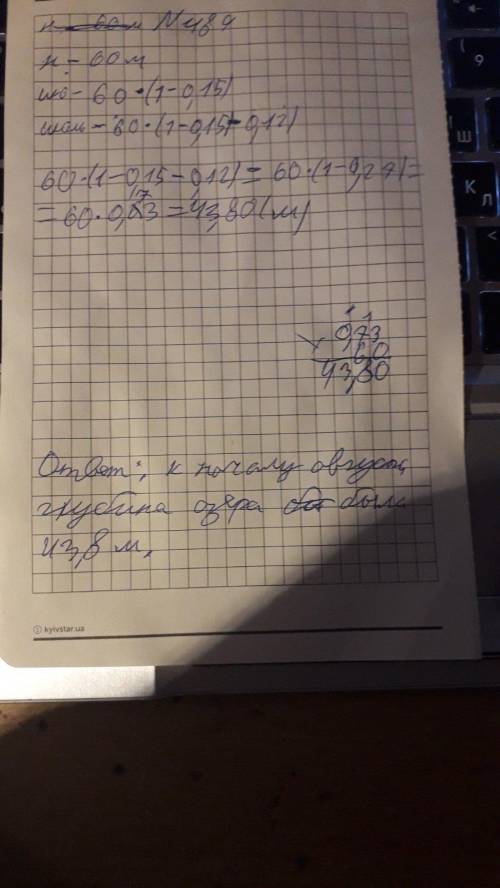 н - 60м №489
н - 60м
июль - 60 · (1-0,15)
60 · (1-0,15-0,12)
60 · (1-0,15-0,12) = 60 · (1-0,27) =
= 60 · 0,73 = 43,80 (м)
0,73
60
43,80
Ответ: к началу августа
глубина озера была
43,8 м.
kyivstar.ua